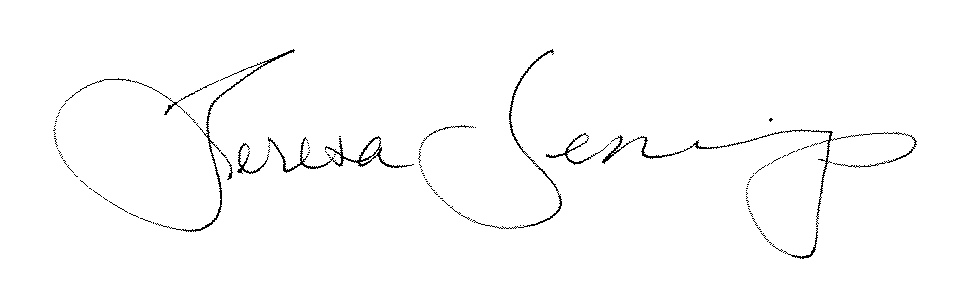 Teresa Jennings